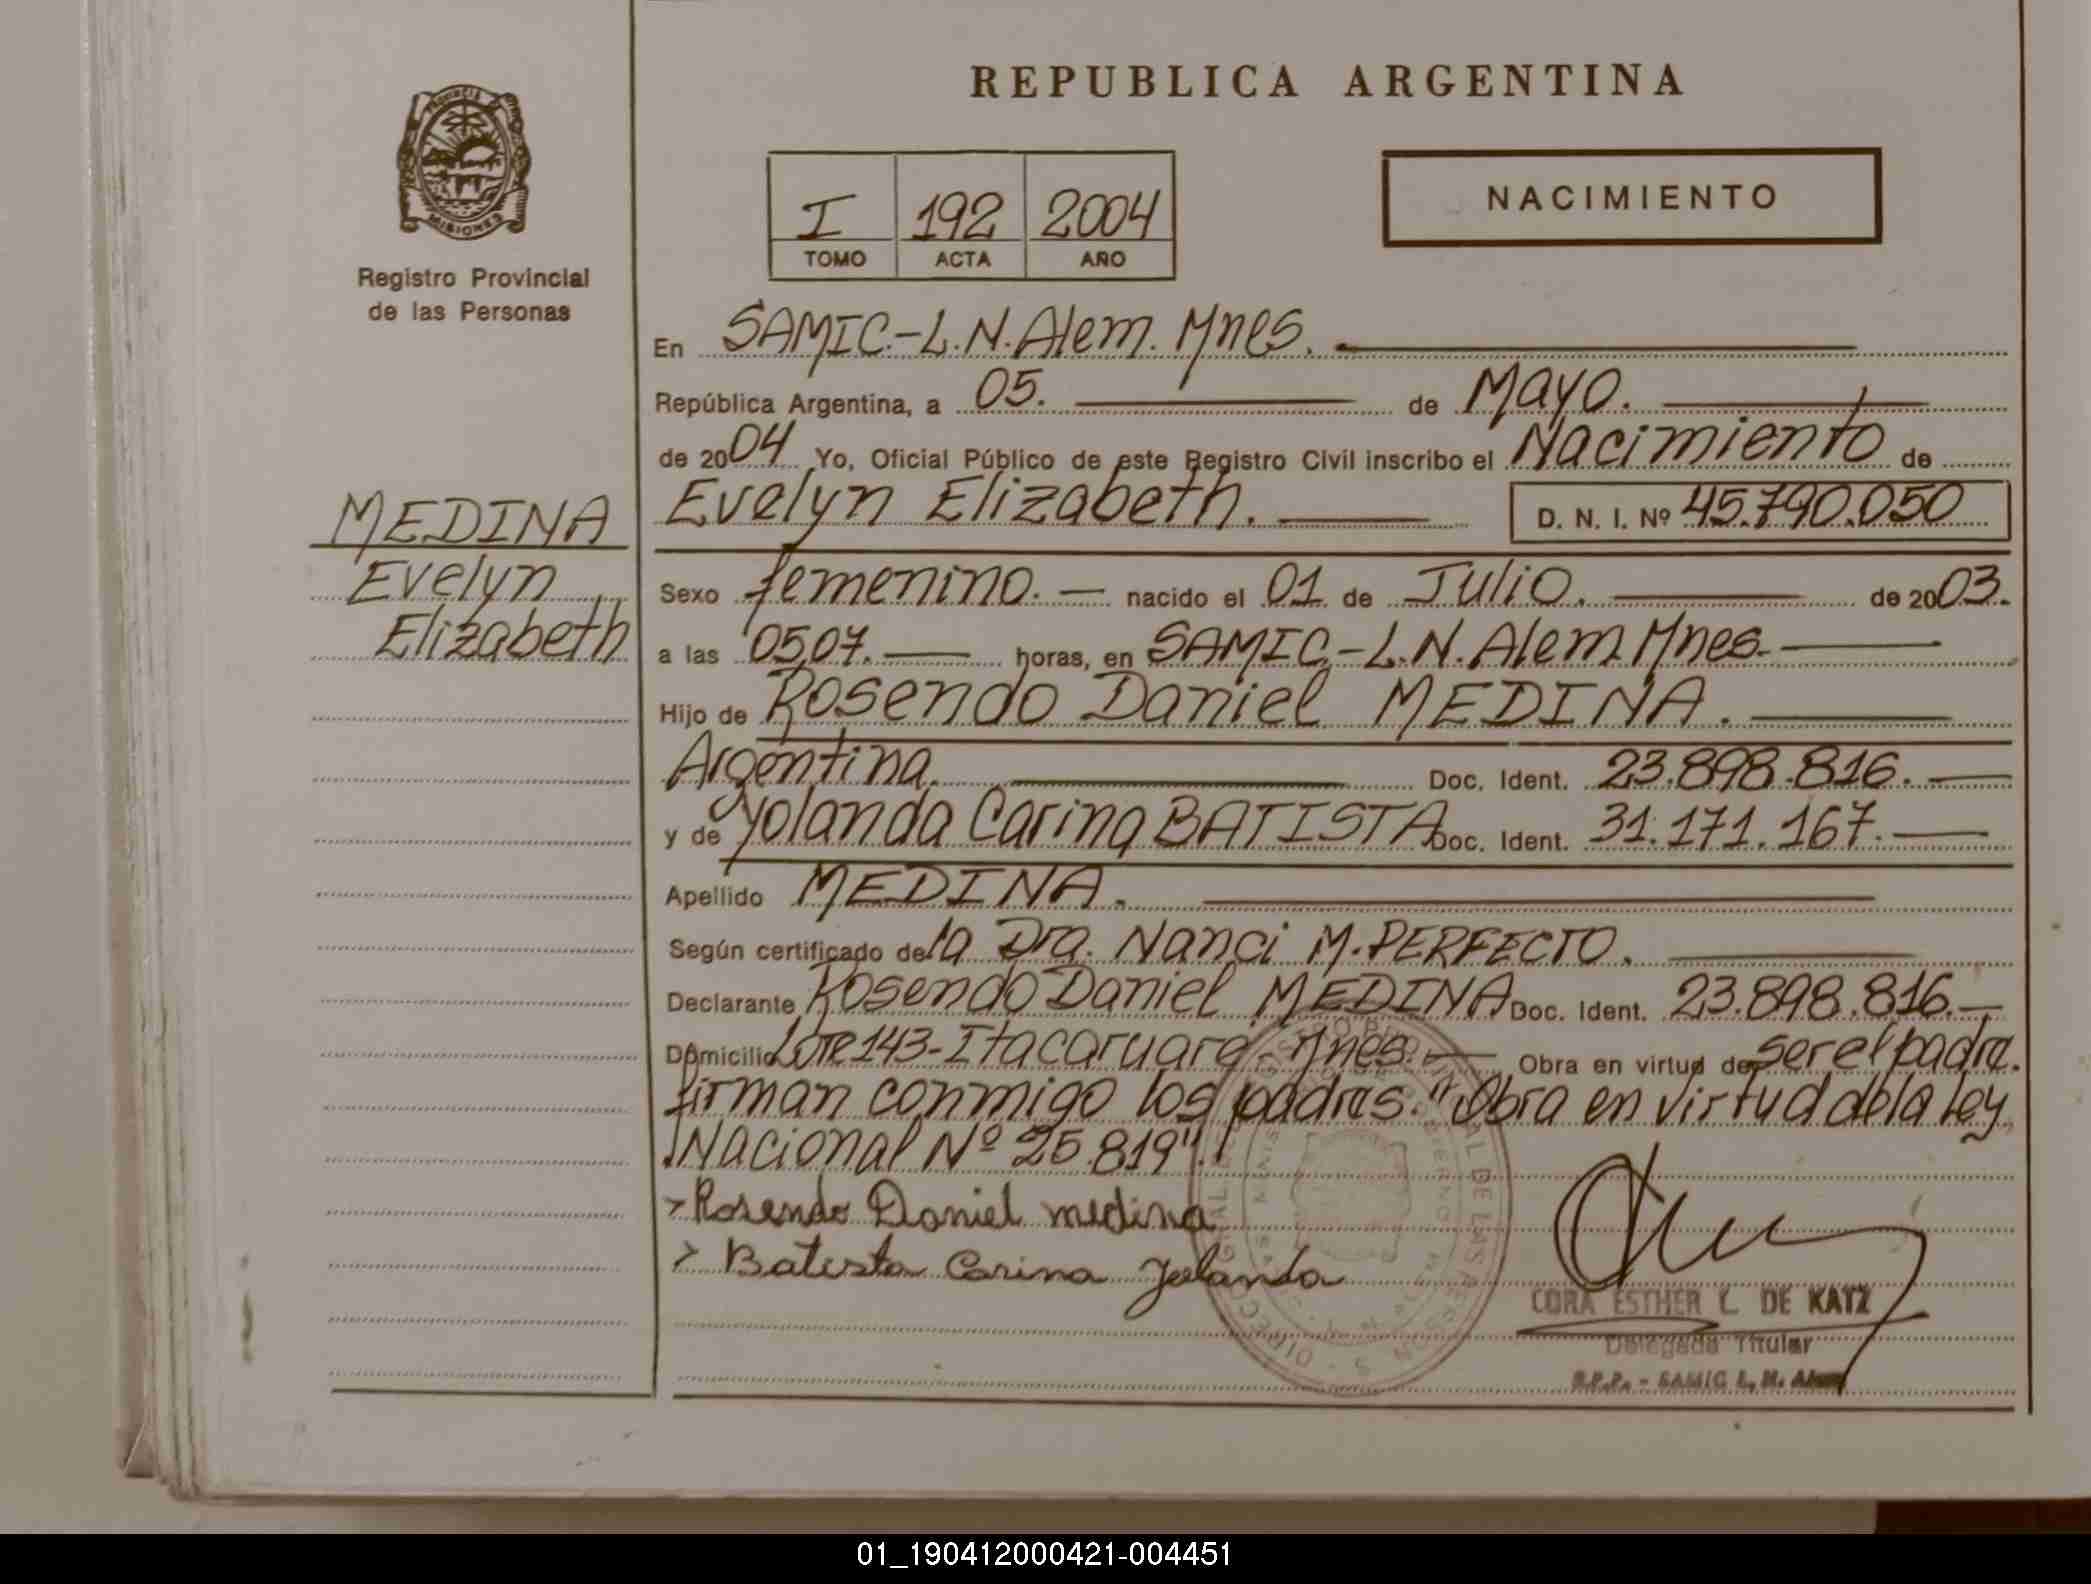 REPUBLICA ARGENTINA
PROVINCIA
MISIONES
Registro Provincial
de las Personas
I 192 2004
TOMO ACTA AÑO
NACIMIENTO
En SAMIC.-L.N.Alem. Mnes.
República Argentina, a 05. de Mayo.
de 2004 Yo, Oficial Público de este Registro Civil inscribo el Nacimiento de
MEDINA
Evelyn
Elizabeth
Evelyn Elizabeth. D. N. I. Nº 45.790.050
Sexo femenino.- nacido el 01 de Julio. de 2003.
a las 05,07. horas, en SAMIC.-L.N.Alem.Mnes.
Hijo de Rosendo Daniel MEDINA.
Argentina. Doc. Ident. 23.898.816.
y de Yolanda Carina BATISTA Doc. Ident. 31.171.167.
Apellido MEDINA.
Según certificado de la Dra. Nanci M. PERFECTO.
Declarante Rosendo Daniel MEDINA Doc. Ident. 23.898.816.-
Domicilio Lote 143-Itacaruare- Mnes.- Obra en virtud de ser el padre.
firman conmigo los padres."Obra en virtud de la Ley
Nacional Nº 25.819".
>Rosendo Daniel medina
> Batista Carina Yolanda
CORA ESTHER L. DE KATZ
Delegada Titular
R.P.P. - SAMIC L. N. Alem
01_190412000421-004451